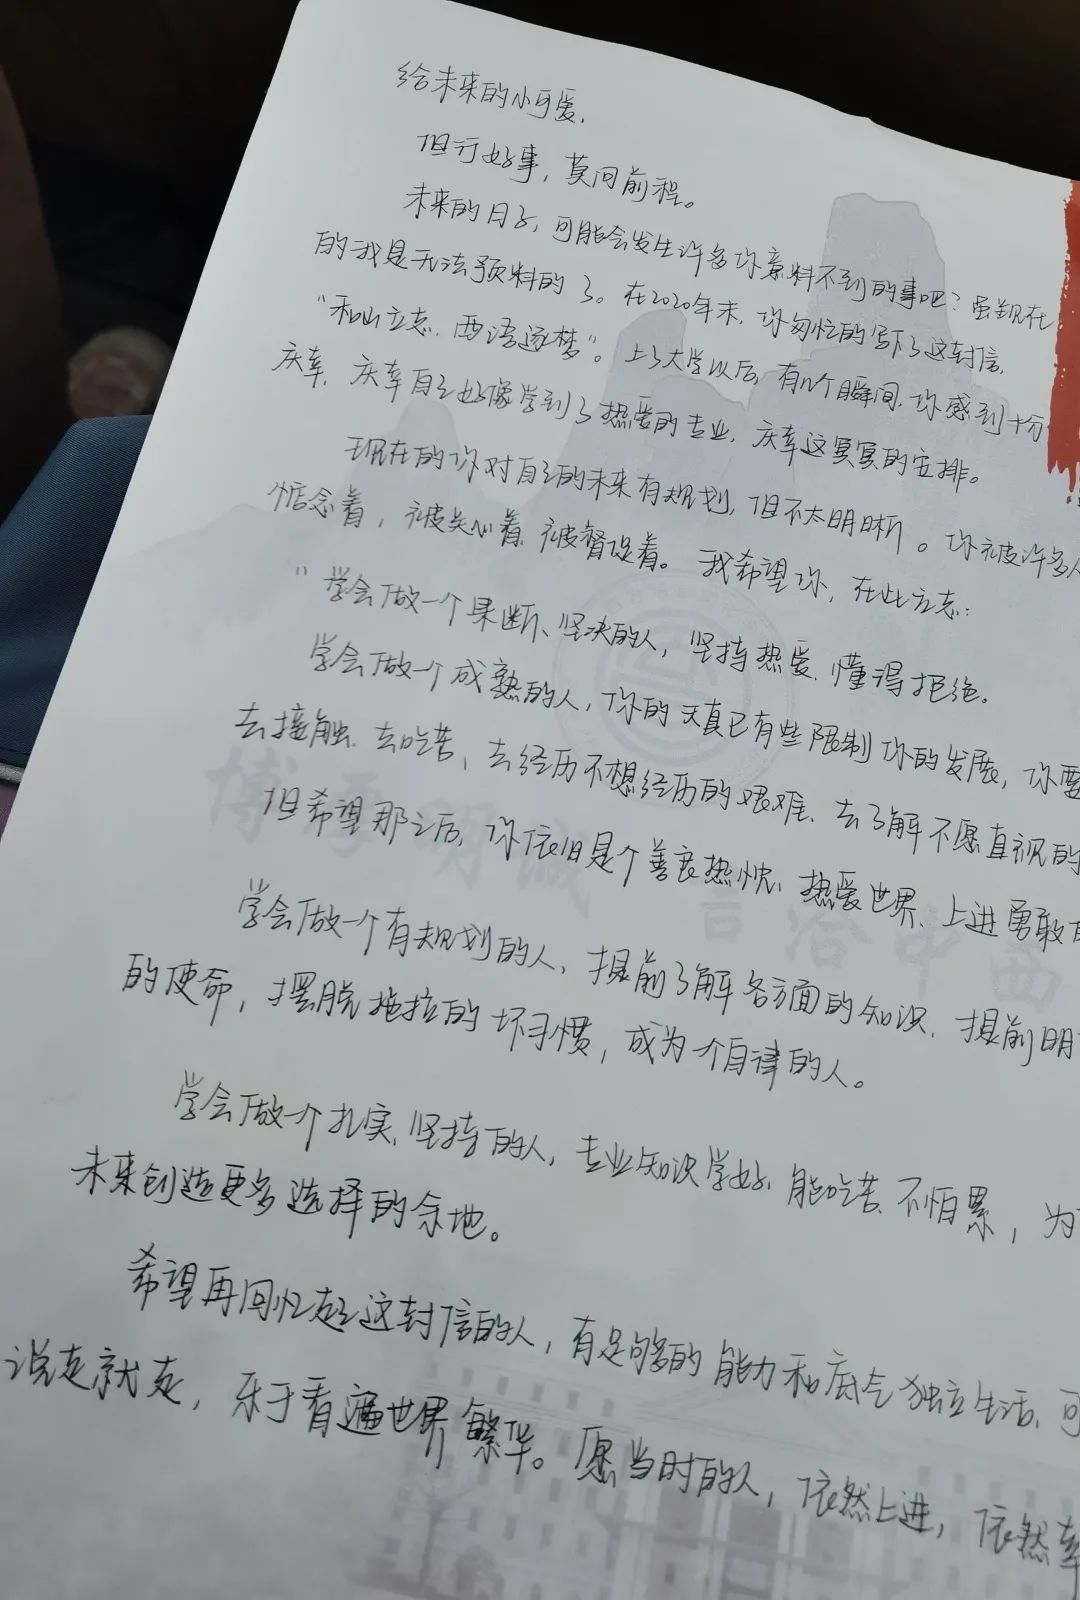 给未来的小可爱,
但行好事，莫问前程。
未来的日子，可能会发生许多你意料不到的事吧？虽现在
的我是无法预料的了。在2020年末，你匆忙的写下了这封信，
“和山立志，西语逐梦”。上了大学以后，有几个瞬间，你感到十分
庆幸，庆幸自己好像学到了热爱的专业，庆幸这冥冥的安排。
现在的你对自己的未来有规划，但不太明晰。你被许多人
惦念着，被关心着，被督促着。我希望你，在此立志：
“学会做一个果断、坚决的人，坚持热爱，懂得拒绝。
学会做一个成熟的人，你的天真已有些限制你的发展，你要
去接触、去吃苦、去经历不想经历的艰难、去了解不愿直视的
但希望那之后，你依旧是个善良热忱、热爱世界、上进勇敢
学会做一个有规划的人，提前了解各方面的知识、提前明
的使命，摆脱拖拉的坏习惯，成为一个自律的人。
学会做一个扎实、坚持的人，专业知识学好、能吃苦、不怕累，为
未来创造更多选择的余地。
希望再回忆起这封信的人，有足够的能力和底气独立生活，可
说走就走，乐于看遍世界繁华。愿当时的人，依然上进，依然幸
博学明诚 言洽中西